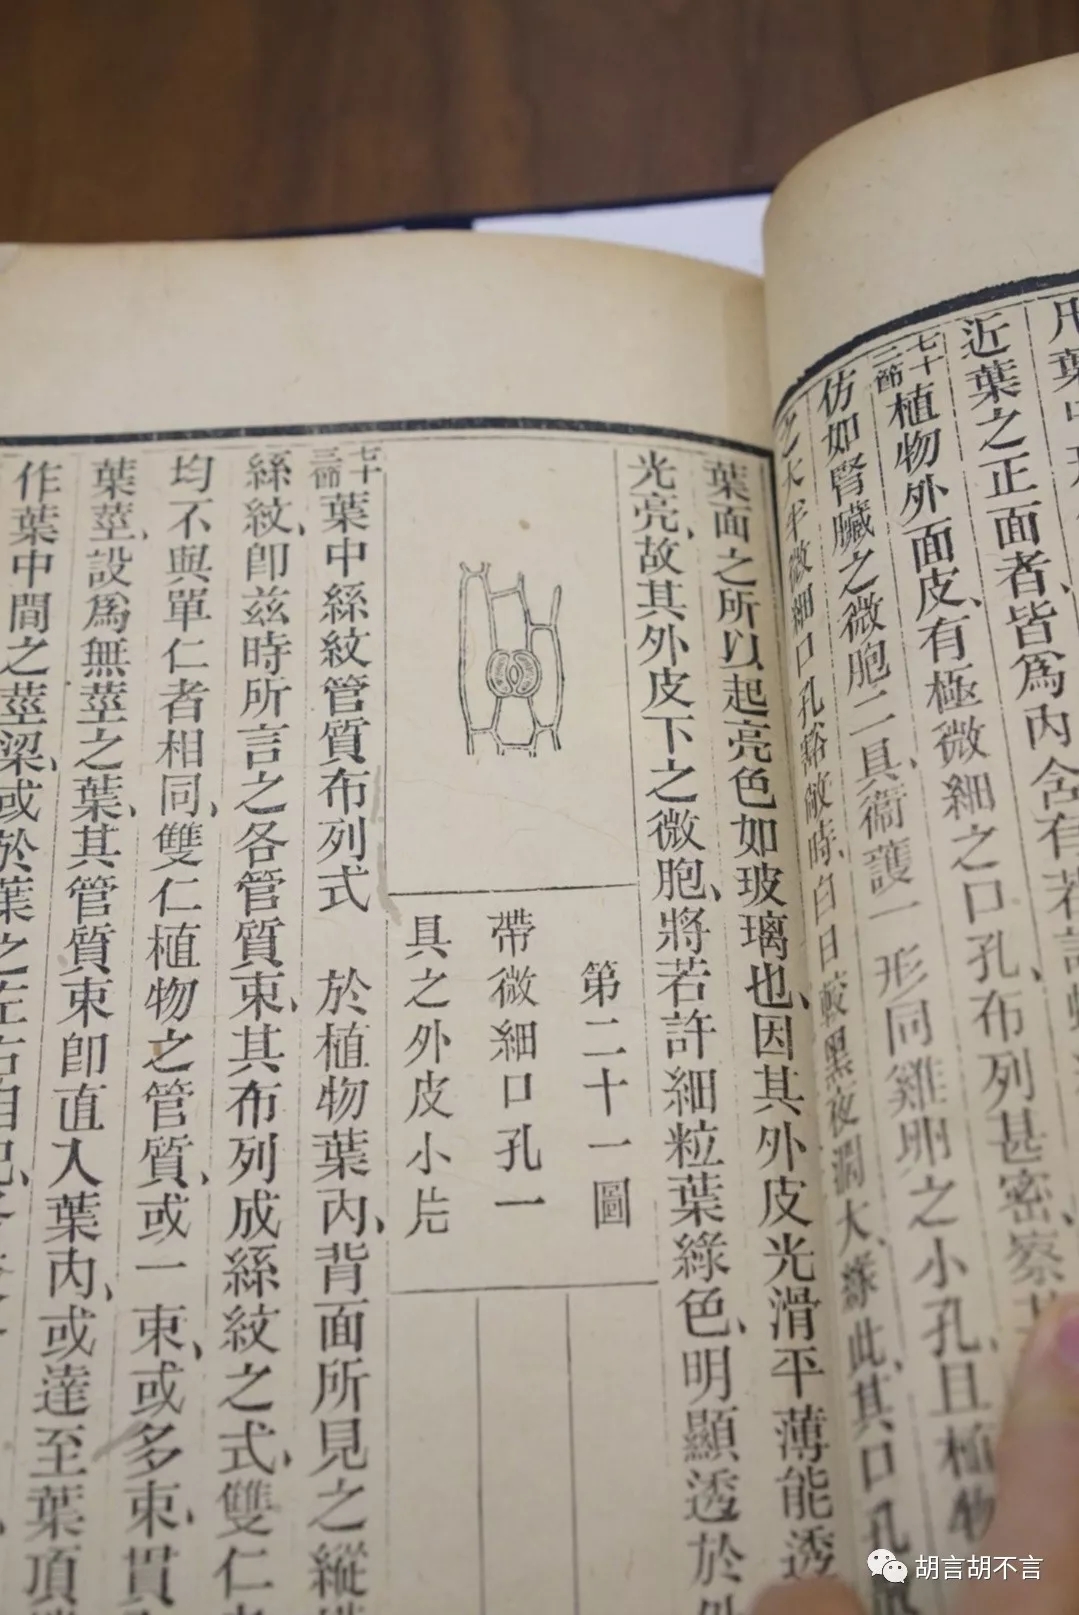 近葉之正面者、皆爲內含有若許
七十二節植物外面皮、有極微細之口孔、布列甚密、察
仿如腎臟之微胞二具、衞護一形同雞卵之小孔、且植物
微細口孔豁敞時、白日較黑夜濶大、緣此、其口孔
葉面之所以起亮色如玻璃也、因其外皮光滑平薄能透
光亮、故其外皮下之微胞、將若許細粒葉綠色、明顯透於外
第二十一圖
帶微細口孔一
具之外皮小片
七十三節葉中絲紋管質布列式 於植物葉內、背面所見之縱
絲紋、卽茲時所言之各管質束、其布列成絲紋之式、雙仁
均不與單仁者相同、雙仁植物之管質、或一束、或多束、貫
葉莖、設爲無莖之葉、其管質束卽直入葉內、或達至葉頂
作葉中間之莖梁、或於葉之左右自
胡言胡不言